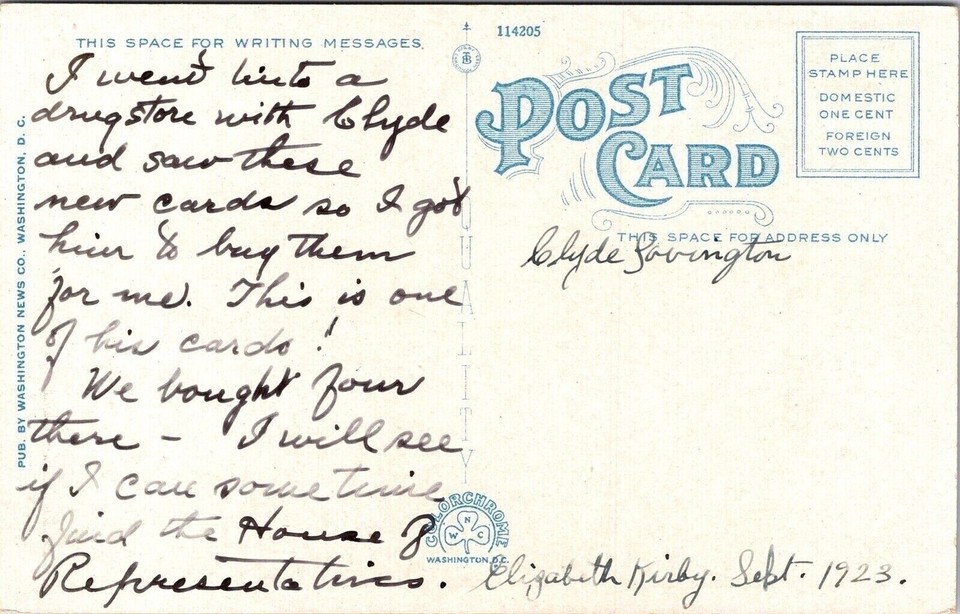 THIS SPACE FOR WRITING MESSAGES.
I went into a
drugstore with Clyde
and saw these
new cards so I got
him to buy them
for me. This is one
of his cards!
We bought four
there - I will see
if I can some time
find the House of
Representatives.
PUB. BY WASHINGTON NEWS CO., WASHINGTON, D. C.
114205
QUALITY
COLORCHROME
N
W C
WASHINGTON, D.C.
POST
CARD
PLACE
STAMP HERE
DOMESTIC
ONE CENT
FOREIGN
TWO CENTS
THIS SPACE FOR ADDRESS ONLY
Clyde Lovington
Elizabeth Kirby. Sept. 1923.